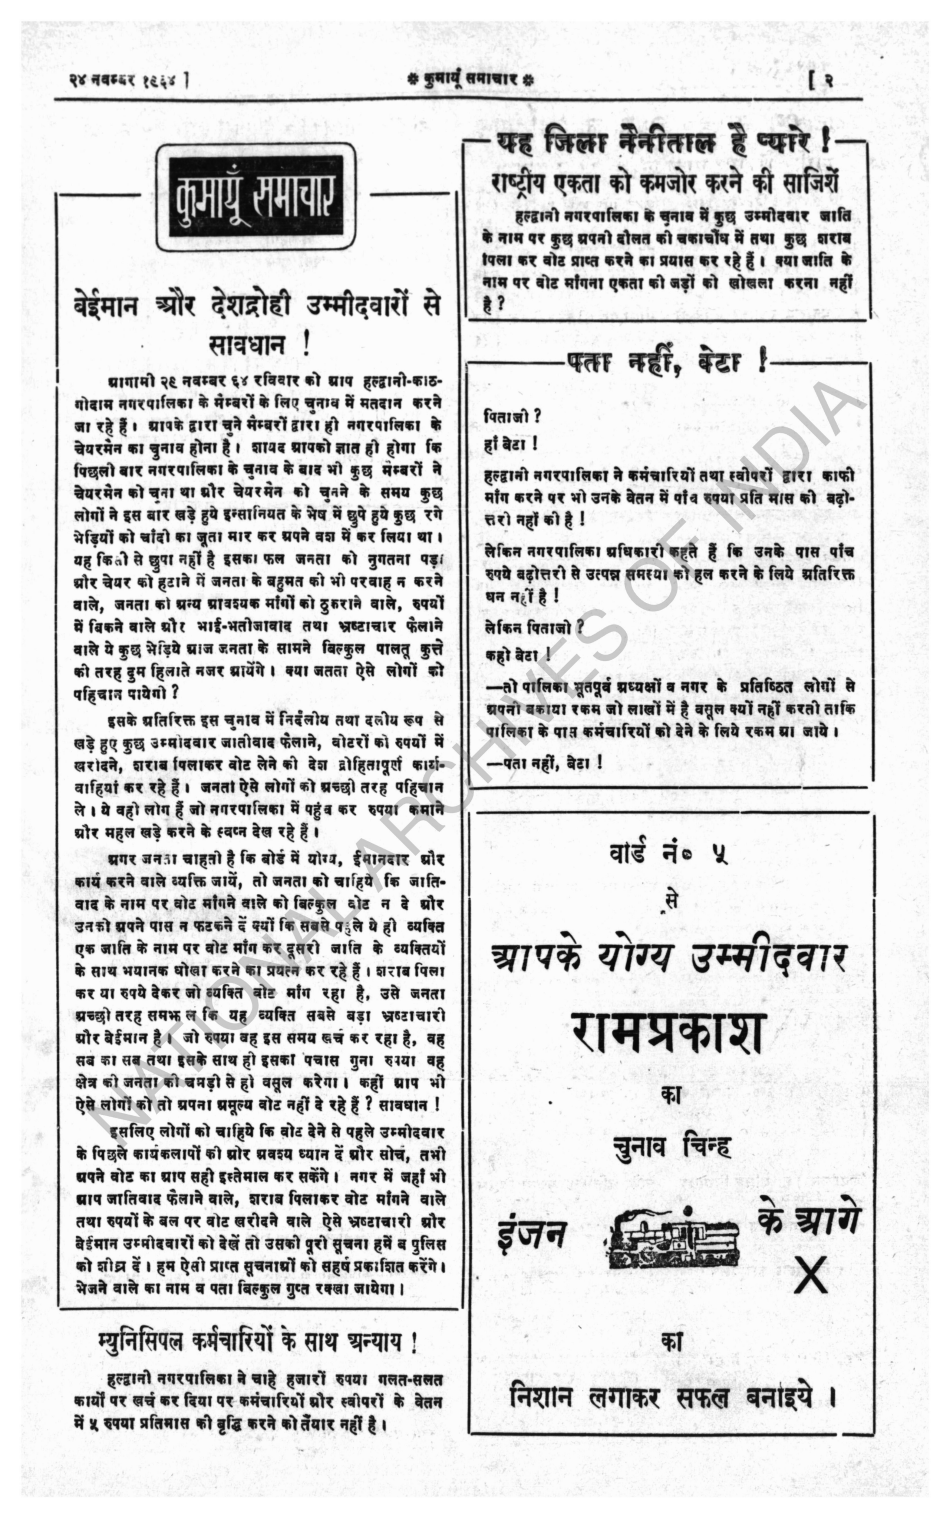 २४ नवम्बर १९६४ ]
❉ कुमायूँ समाचार ❉
[ २
कुमायूँ समाचार
बेईमान और देशद्रोही उम्मीदवारों से
सावधान !
आगामी २९ नवम्बर ६४ रविवार को आप हल्द्वानी-काठ-
गोदाम नगरपालिका के मेम्बरों के लिए चुनाव में मतदान करने
जा रहे हैं । आपके द्वारा चुने मेम्बरों द्वारा ही नगरपालिका के
चेयरमैन का चुनाव होना है । शायद आपको ज्ञात ही होगा कि
पिछली बार नगरपालिका के चुनाव के बाद भी कुछ मेम्बरों ने
चेयरमैन को चुना था और चेयरमैन को चुनने के समय कुछ
लोगों ने इस बार खड़े हुये इन्सानियत के भेष में छुपे हुये कुछ रगे
भेड़ियों को चांदी का जूता मार कर अपने वश में कर लिया था ।
यह किसी से छुपा नहीं है इसका फल जनता को भुगतना पड़ा
और चेयर को हटाने में जनता के बहुमत को भी परवाह न करने
वाले, जनता को अन्य आवश्यक मांगों को ठुकराने वाले, रुपयों
में बिकने वाले और भाई-भतीजावाद तथा भ्रष्टाचार फैलाने
वाले ये कुछ भेड़िये आज जनता के सामने बिल्कुल पालतू कुत्ते
की तरह दुम हिलाते नजर आयेंगे । क्या जतता ऐसे लोगों को
पहिचान पायेगी ?
इसके अतिरिक्त इस चुनाव में निर्दलीय तथा दलीय रूप से
खड़े हुए कुछ उम्मीदवार जातीवाद फैलाने, वोटरों को रुपयों में
खरीदने, शराब पिलाकर वोट लेने की देश द्रोहितापूर्ण कार्य-
वाहियां कर रहे हैं । जनता ऐसे लोगों को अच्छी तरह पहिचान
ले । ये वही लोग हैं जो नगरपालिका में पहुंच कर रुपया कमाने
और महल खड़े करने के स्वप्न देख रहे हैं ।
अगर जनता चाहती है कि बोर्ड में योग्य, ईमानदार और
कार्य करने वाले व्यक्ति जायें, तो जनता को चाहिये कि जाति-
वाद के नाम पर वोट मांगने वाले को बिल्कुल वोट न दे और
उनको अपने पास न फटकने दें क्यों कि सबसे पहले ये ही व्यक्ति
एक जाति के नाम पर वोट मांग कर दूसरी जाति के व्यक्तियों
के साथ भयानक धोखा करने का प्रयत्न कर रहे हैं । शराब पिला
कर या रुपये देकर जो व्यक्ति वोट मांग रहा है, उसे जनता
अच्छी तरह समझ ले कि यह व्यक्ति सबसे बड़ा भ्रष्टाचारी
और बेईमान है । जो रुपया वह इस समय खर्च कर रहा है, वह
सब का सब तथा इसके साथ ही इसका पचास गुना रुपया वह
क्षेत्र की जनता की चमड़ी से ही वसूल करेगा । कहीं आप भी
ऐसे लोगों को तो अपना अमूल्य वोट नहीं दे रहे हैं ? सावधान !
इसलिए लोगों को चाहिये कि वोट देने से पहले उम्मीदवार
के पिछले कार्यकलापों की ओर अवश्य ध्यान दें और सोचें, तभी
अपने वोट का आप सही इस्तेमाल कर सकेंगे । नगर में जहाँ भी
आप जातिवाद फैलाने वाले, शराब पिलाकर वोट मांगने वाले
तथा रुपयों के बल पर वोट खरीदने वाले ऐसे भ्रष्टाचारी और
बेईमान उम्मीदवारों को देखें तो उसकी पूरी सूचना हमें व पुलिस
को शीघ्र दें । हम ऐसी प्राप्त सूचनाओं को सहर्ष प्रकाशित करेंगे ।
भेजने वाले का नाम व पता बिल्कुल गुप्त रक्खा जायेगा ।
म्युनिसिपल कर्मचारियों के साथ अन्याय !
हल्द्वानी नगरपालिका ने चाहे हजारों रुपया गलत-सलत
कार्यों पर खर्च कर दिया पर कर्मचारियों और स्वीपरों के वेतन
में ५ रुपया प्रतिमास की बृद्धि करने को तैयार नहीं है ।
यह जिला नैनीताल है प्यारे !
राष्ट्रीय एकता को कमजोर करने की साजिशें
हल्द्वानी नगरपालिका के चुनाव में कुछ उम्मीदवार जाति
के नाम पर कुछ अपनी दौलत की चकाचौंध में तथा कुछ शराब
पिला कर वोट प्राप्त करने का प्रयास कर रहे हैं । क्या जाति के
नाम पर वोट मांगना एकता की जड़ों को खोखला करना नहीं
है ?
पता नहीं, बेटा !
पिताजी ?
हाँ बेटा !
हल्द्वानी नगरपालिका ने कर्मचारियों तथा स्वीपरों द्वारा काफी
मांग करने पर भी उनके वेतन में पांच रुपया प्रति मास की बढ़ो-
त्तरी नहीं की है !
लेकिन नगरपालिका अधिकारी कहते हैं कि उनके पास पाँच
रुपये बढ़ोत्तरी से उत्पन्न समस्या को हल करने के लिये अतिरिक्त
धन नहीं है !
लेकिन पिताजी ?
कहो बेटा !
—तो पालिका भूतपूर्व अध्यक्षों व नगर के प्रतिष्ठित लोगों से
अपनी बकाया रकम जो लाखों में है वसूल क्यों नहीं करती ताकि
पालिका के पास कर्मचारियों को देने के लिये रकम आ जाये ।
—पता नहीं, बेटा !
वार्ड नं० ५
से
आपके योग्य उम्मीदवार
रामप्रकाश
का
चुनाव चिन्ह
इंजन के आगे
X
का
निशान लगाकर सफल बनाइये ।
NATIONAL ARCHIVES OF INDIA